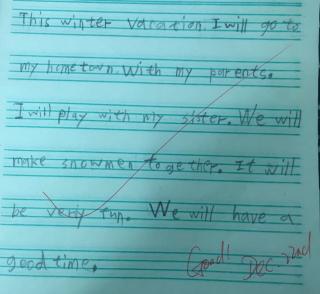 This winter vacation. I will go to
my hometown. With my parents.
I will play with my sister. We will
make snowmen together. It will
be very fun. We will have a
good time.
Good! Dec 22nd